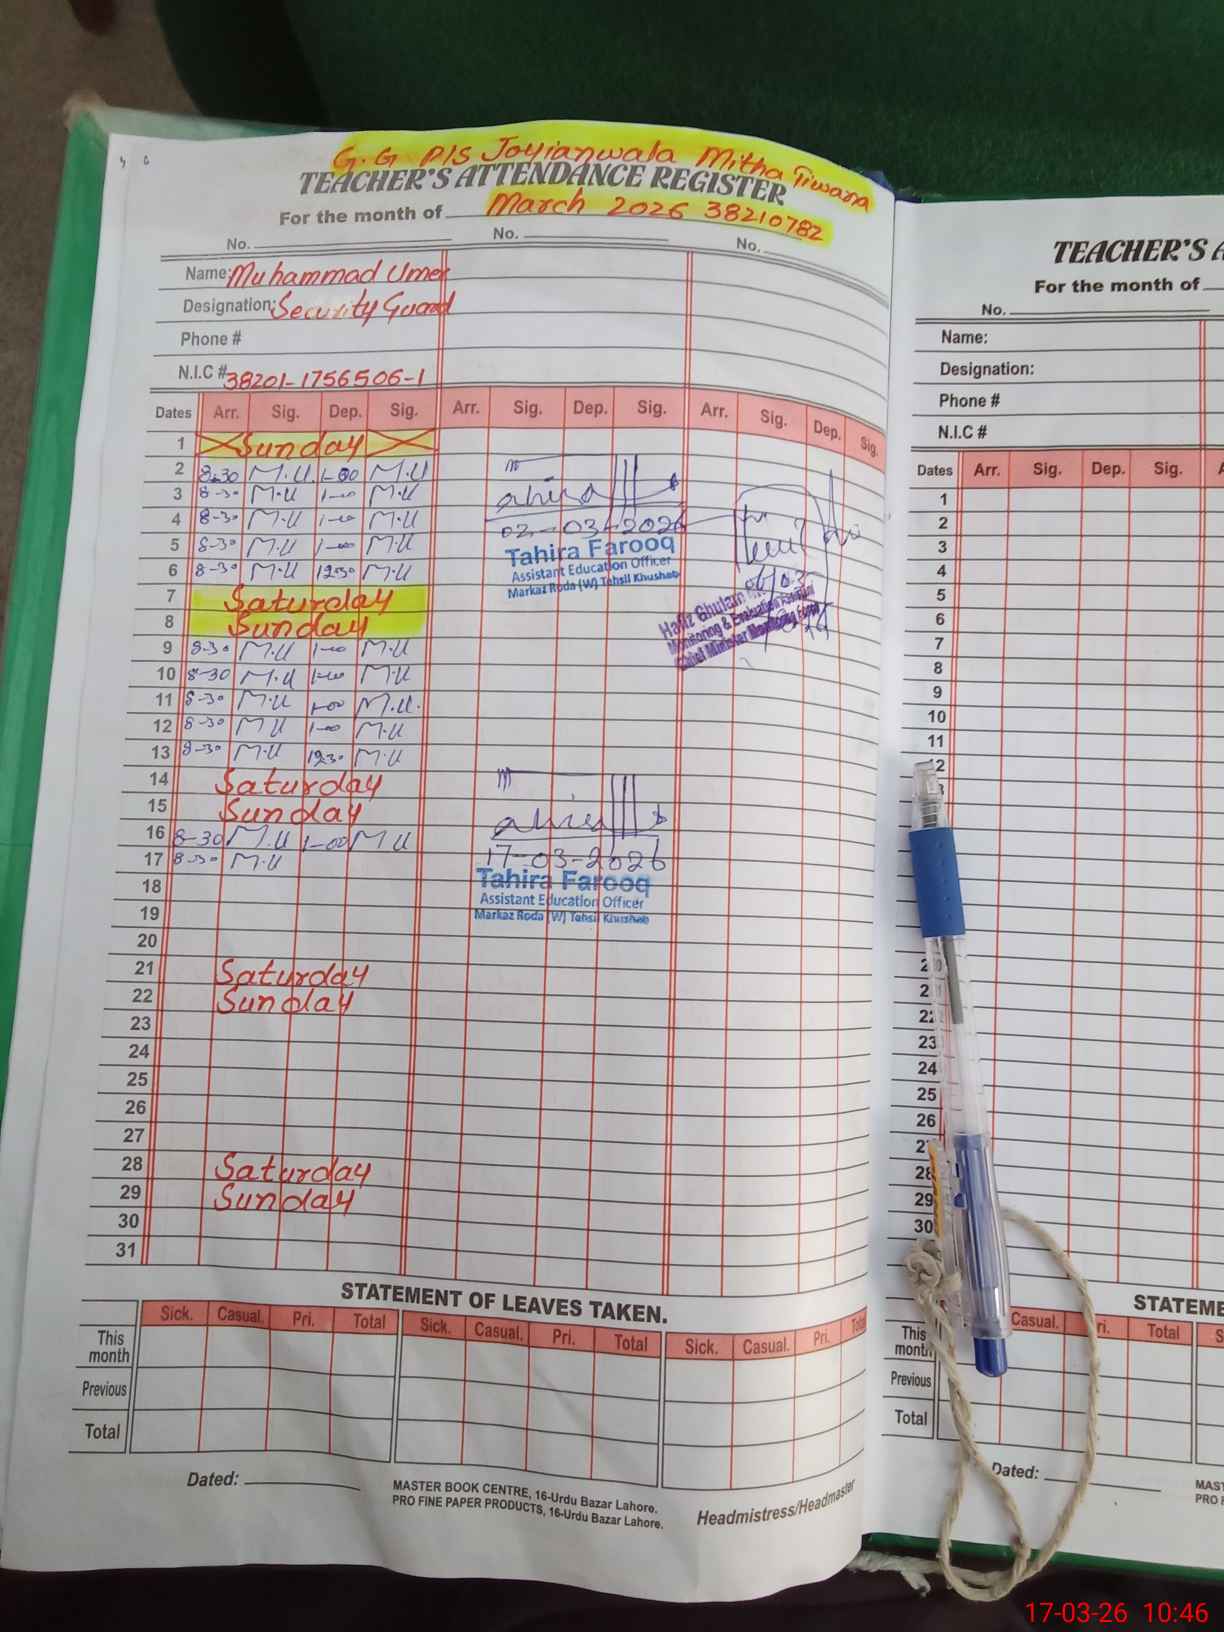 G.G P/S Joyianwala Mitha Tiwana
TEACHER'S ATTENDANCE REGISTER
For the month of March 2026 38210782
No. No. No.
Name: Muhammad Umer
Designation: Security Guard
Phone #
N.I.C # 38201-1756506-1
Dates Arr. Sig. Dep. Sig. Arr. Sig. Dep. Sig. Arr. Sig. Dep. Sig.
1 Sunday
2 8-30 M.U 1-00 M.U
3 8-30 M.U 1-00 M.U
4 8-30 M.U 1-00 M.U
5 8-30 M.U 1-00 M.U
6 8-30 M.U 12:30 M.U
7 Saturday
8 Sunday
9 8-30 M.U 1-00 M.U
10 8-30 M.U 1-00 M.U
11 8-30 M.U 1-00 M.U.
12 8-30 M.U 1-00 M.U
13 8-30 M.U 12:30 M.U
14 Saturday
15 Sunday
16 8-30 M.U 1-00 M.U
17 8-30 M.U
18
19
20
21 Saturday
22 Sunday
23
24
25
26
27
28 Saturday
29 Sunday
30
31
02-03-2026
Tahira Farooq
Assistant Education Officer
Markaz Roda (W) Tehsil Khushab
Hafiz Ghulam
Monitoring & Evaluation Assistant
Chief Minister Monitoring Force
17-03-2026
Tahira Farooq
Assistant Education Officer
Markaz Roda (W) Tehsil Khushab
STATEMENT OF LEAVES TAKEN.
Sick. Casual. Pri. Total Sick. Casual. Pri. Total Sick. Casual. Pri. Total
This month
Previous
Total
Dated:
MASTER BOOK CENTRE, 16-Urdu Bazar Lahore.
PRO FINE PAPER PRODUCTS, 16-Urdu Bazar Lahore.
Headmistress/Headmaster
TEACHER'S A
For the month of
No.
Name:
Designation:
Phone #
N.I.C #
Dates Arr. Sig. Dep. Sig.
1
2
3
4
5
6
7
8
9
10
11
12
20
21
22
23
24
25
26
27
28
29
30
STATEME
Casual. Pri. Total S
This month
Previous
Total
Dated:
MAS
PRO F
17-03-26 10:46